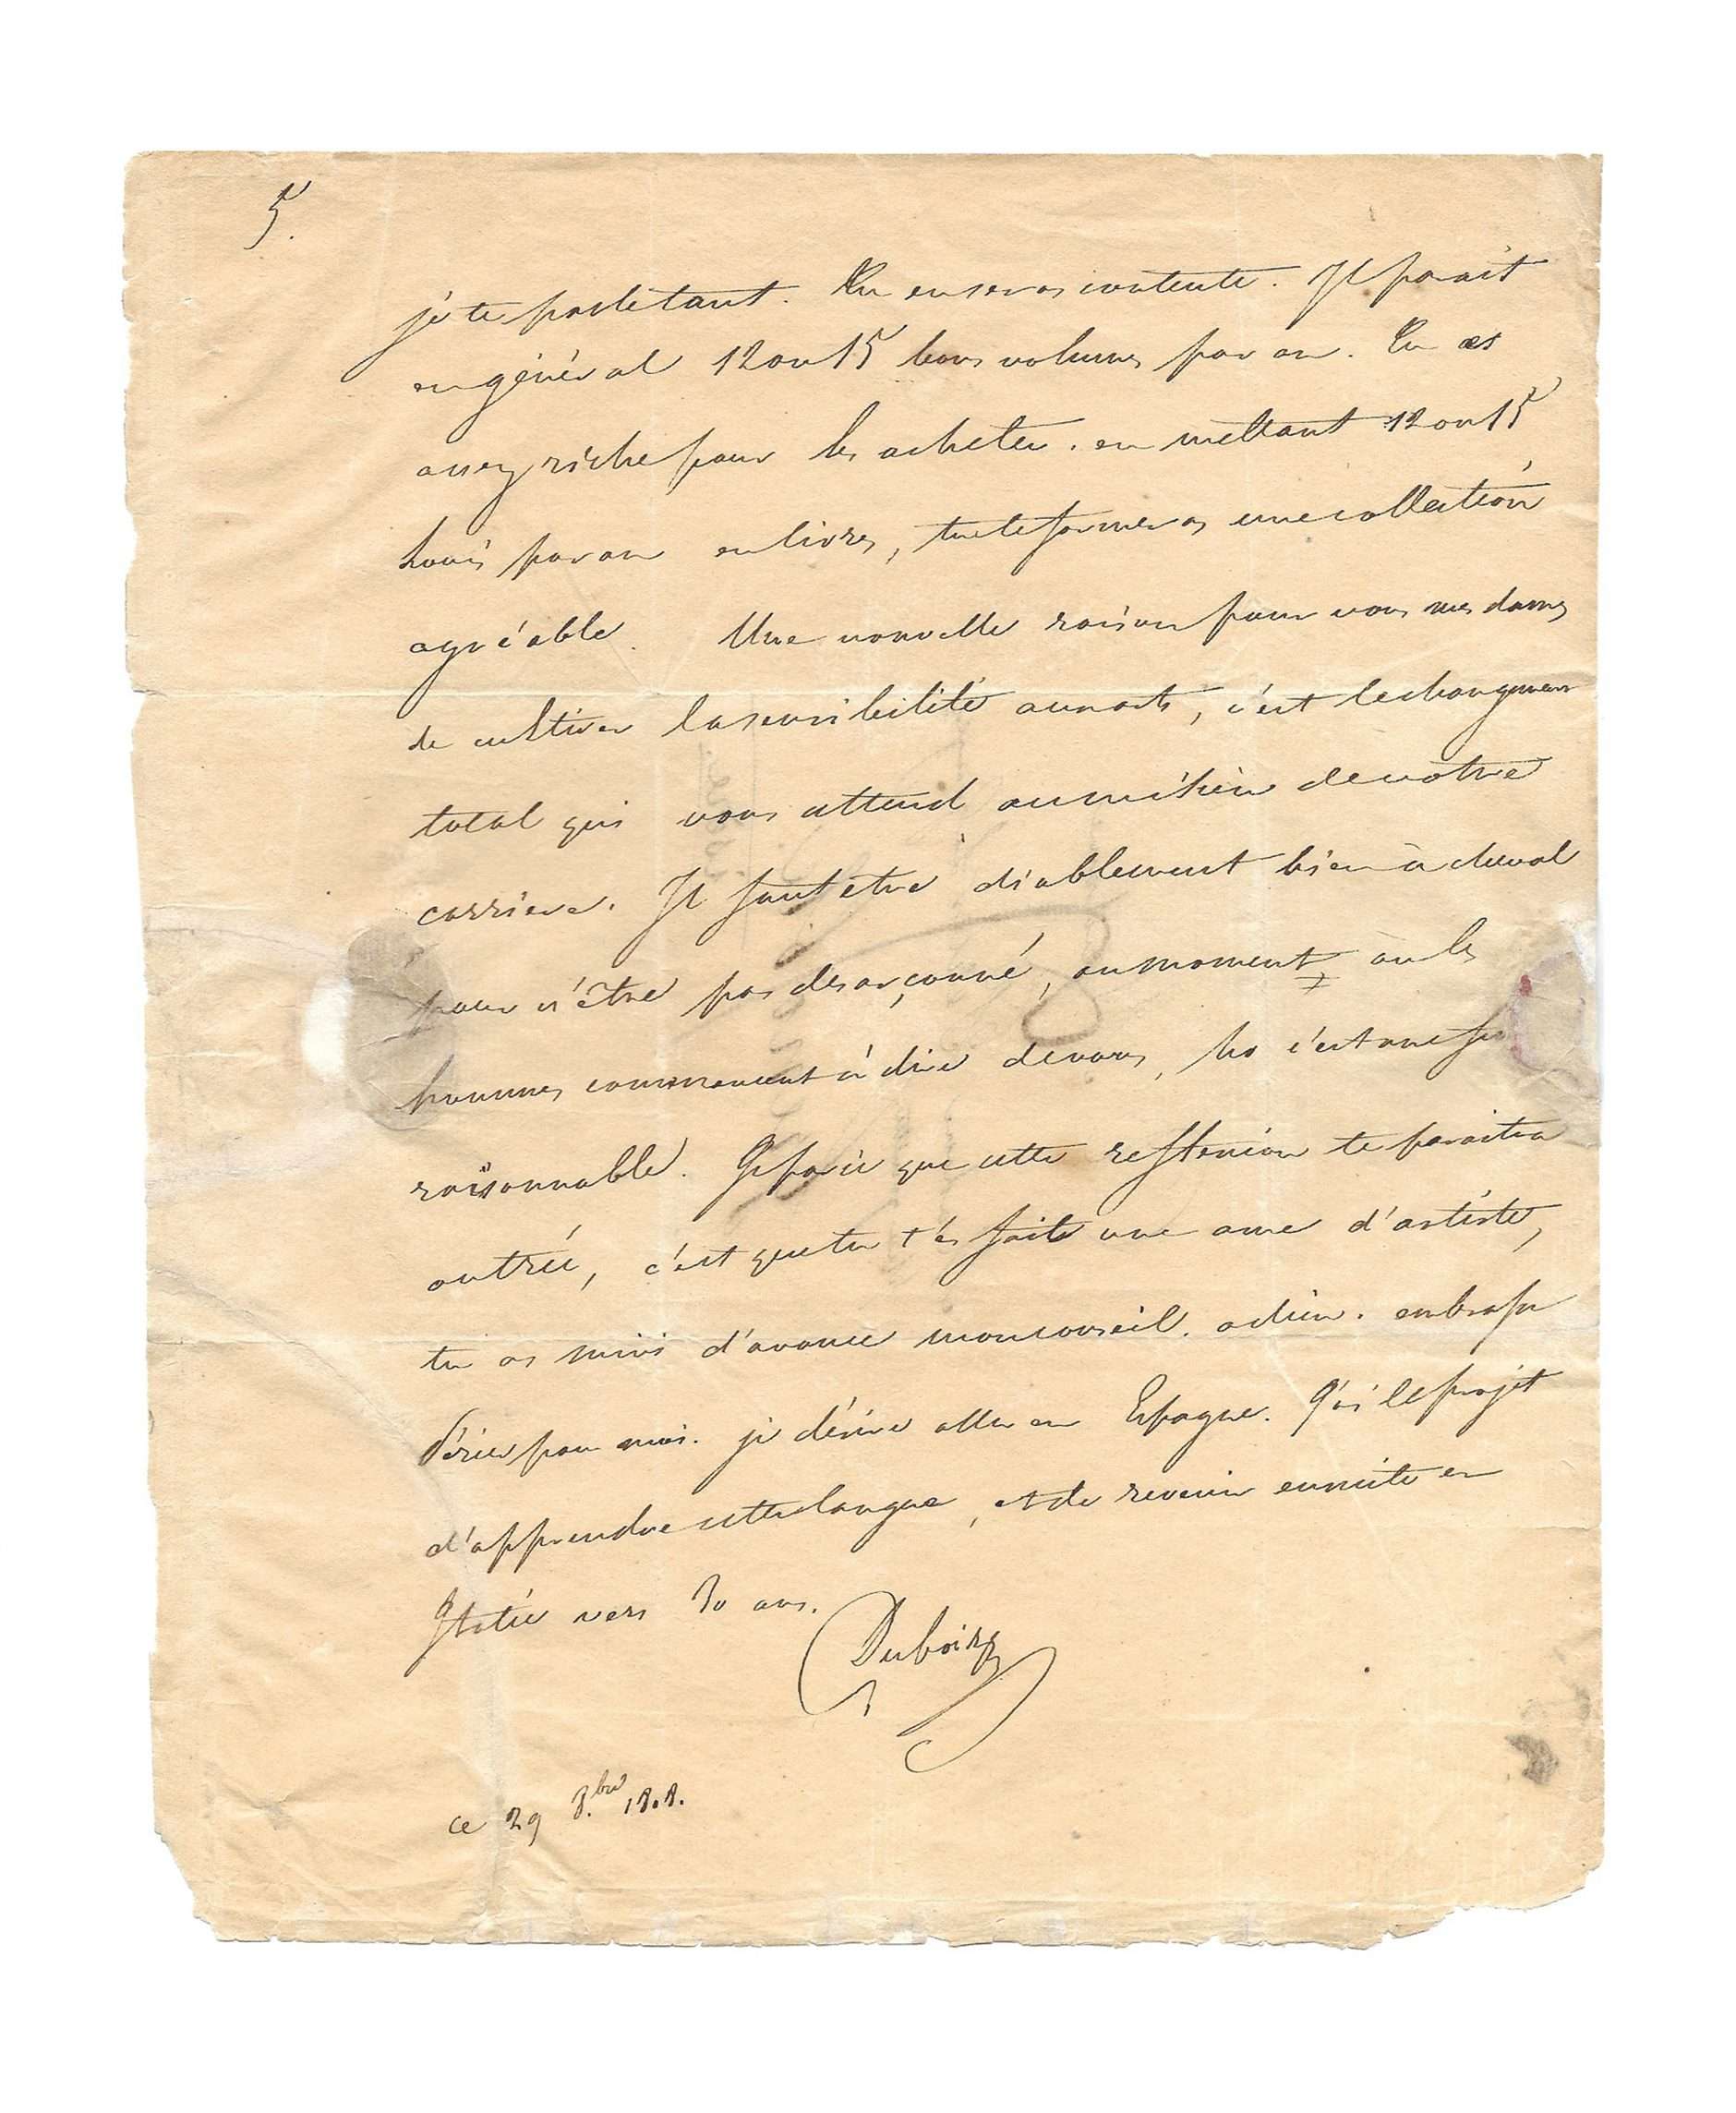 5.
je te parle tant. Tu en seras contente. Il parait
en général 12 ou 15 bons volumes par an. Tu es
assez riche pour les acheter. en mettant 12 ou 15
louis par an en livres, tu te formeras une collection
agréable. Une nouvelle raison pour vous mesdames
de cultiver la sensibilité aux arts, c'est le changement
total qui vous attend au milieu de votre
carriere. Il faut etre diablement bien à cheval
pour n'être pas desarçonné, au moment où les
hommes commencent à dire de vous, ha c'est une fe
raisonnable. Je parie que cette reflexion te paraitra
outrée, c'est que tu t'es faite une ame d'artiste,
tu as suivi d'avance mon conseil. adieu. embrasse
Périer pour moi. je désire aller en Espagne. J'ai le projet
d'apprendre cette langue, et de revenir ensuite en
Italie vers 30 ans.
Dubois
ce 29 8.bre 1808.